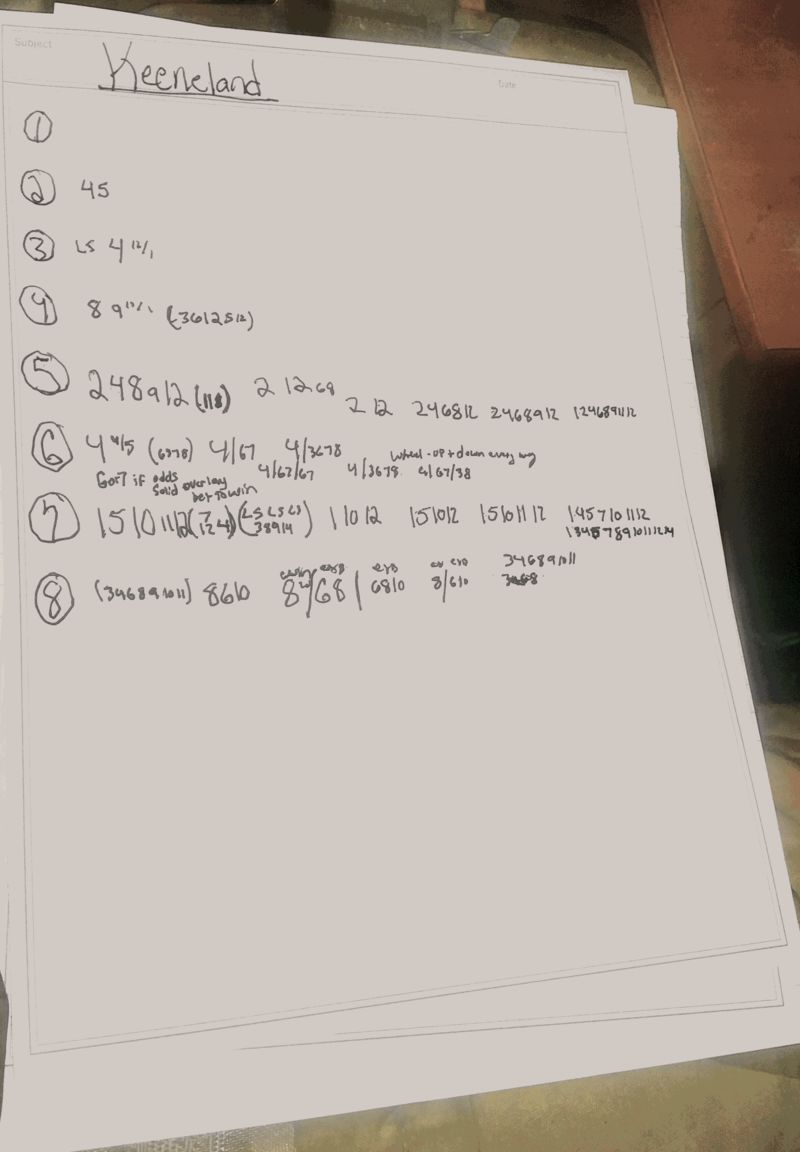 Subject
Keeneland
Date
1
2 45
3 LS 4 12/1
4 8 9 (3612512)
5 248912 (118) 2 12 68
2 12 246812 2468912 1246891112
6 4 4/5 (6378) 4/67 4/3678 Wheel-up + down every way
4/67/67 4/3678 4/67/38
6or7 if odds
solid overlay
bet to win
7 15101112 (7 124) (LS LS LS 38914) 11012 151012 15101112 1457101112
1345789101112
8 (346891011) 8610 8/68 6810 8/610 346891011